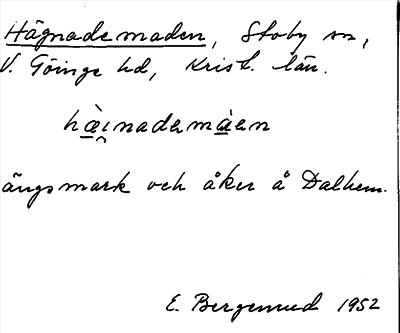 Hägnademaden, Stoby sn,
V. Göinge hd, Krist. län.
hæi̯nadamaen
ängsmark och åker å Dalhem.
E. Bergemud 1952